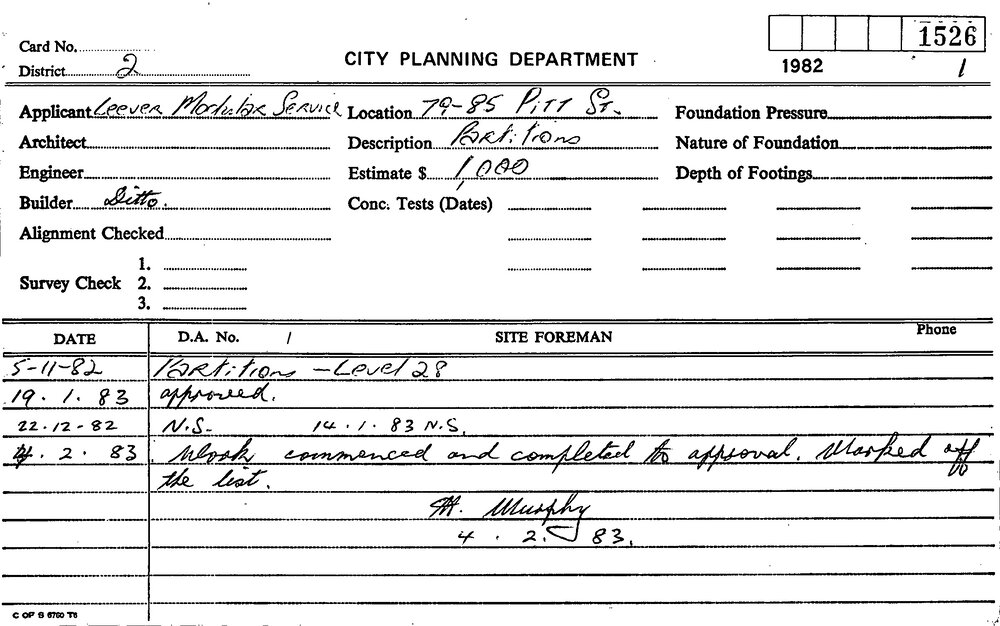 1526
Card No.
District 2
CITY PLANNING DEPARTMENT
1982 1
Applicant Leever Modular Service Location 79-85 Pitt St. Foundation Pressure
Architect Description Partitions Nature of Foundation
Engineer Estimate $ 1,000 Depth of Footings
Builder Ditto. Conc. Tests (Dates)
Alignment Checked
1.
Survey Check 2.
3.
DATE D.A. No. / SITE FOREMAN Phone
5-11-82 Partitions - Level 28
19. 1. 83 approved.
22.12-82 N.S. 14.1.83 N.S.
4. 2. 83 Work commenced and completed to approval. Marked off
the list.
H. Murphy
4. 2. 83.
C OF S 6760 T6